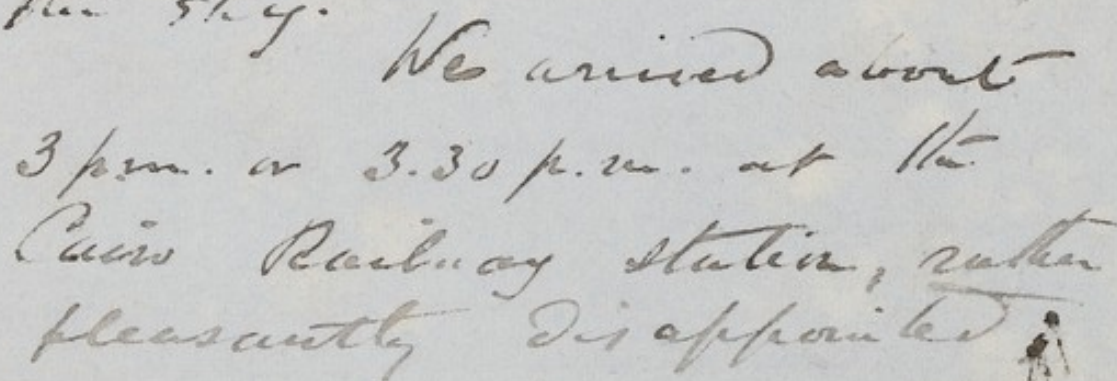 the sky.
We arrived about
3 p.m. or 3.30 p.m. at the
Cairo Railway station, rather
pleasantly disappointed